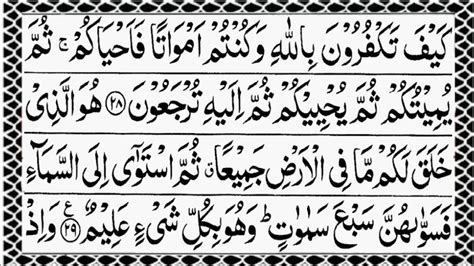 كَيْفَ تَكْفُرُوْنَ بِاللّٰهِ وَكُنْتُمْ اَمْوَاتًا فَاَحْيَاكُمْ ۚ ثُمَّ
يُمِيْتُكُمْ ثُمَّ يُحْيِيْكُمْ ثُمَّ اِلَيْهِ تُرْجَعُوْنَ ﴿۲۸﴾ هُوَ الَّذِيْ
خَلَقَ لَكُمْ مَّا فِي الْاَرْضِ جَمِيْعًا ۗ ثُمَّ اسْتَوٰٓى اِلَى السَّمَآءِ
فَسَوّٰىهُنَّ سَبْعَ سَمٰوٰتٍ ؕ وَهُوَ بِكُلِّ شَيْءٍ عَلِيْمٌ ﴿۲۹﴾ ع وَاِذْ